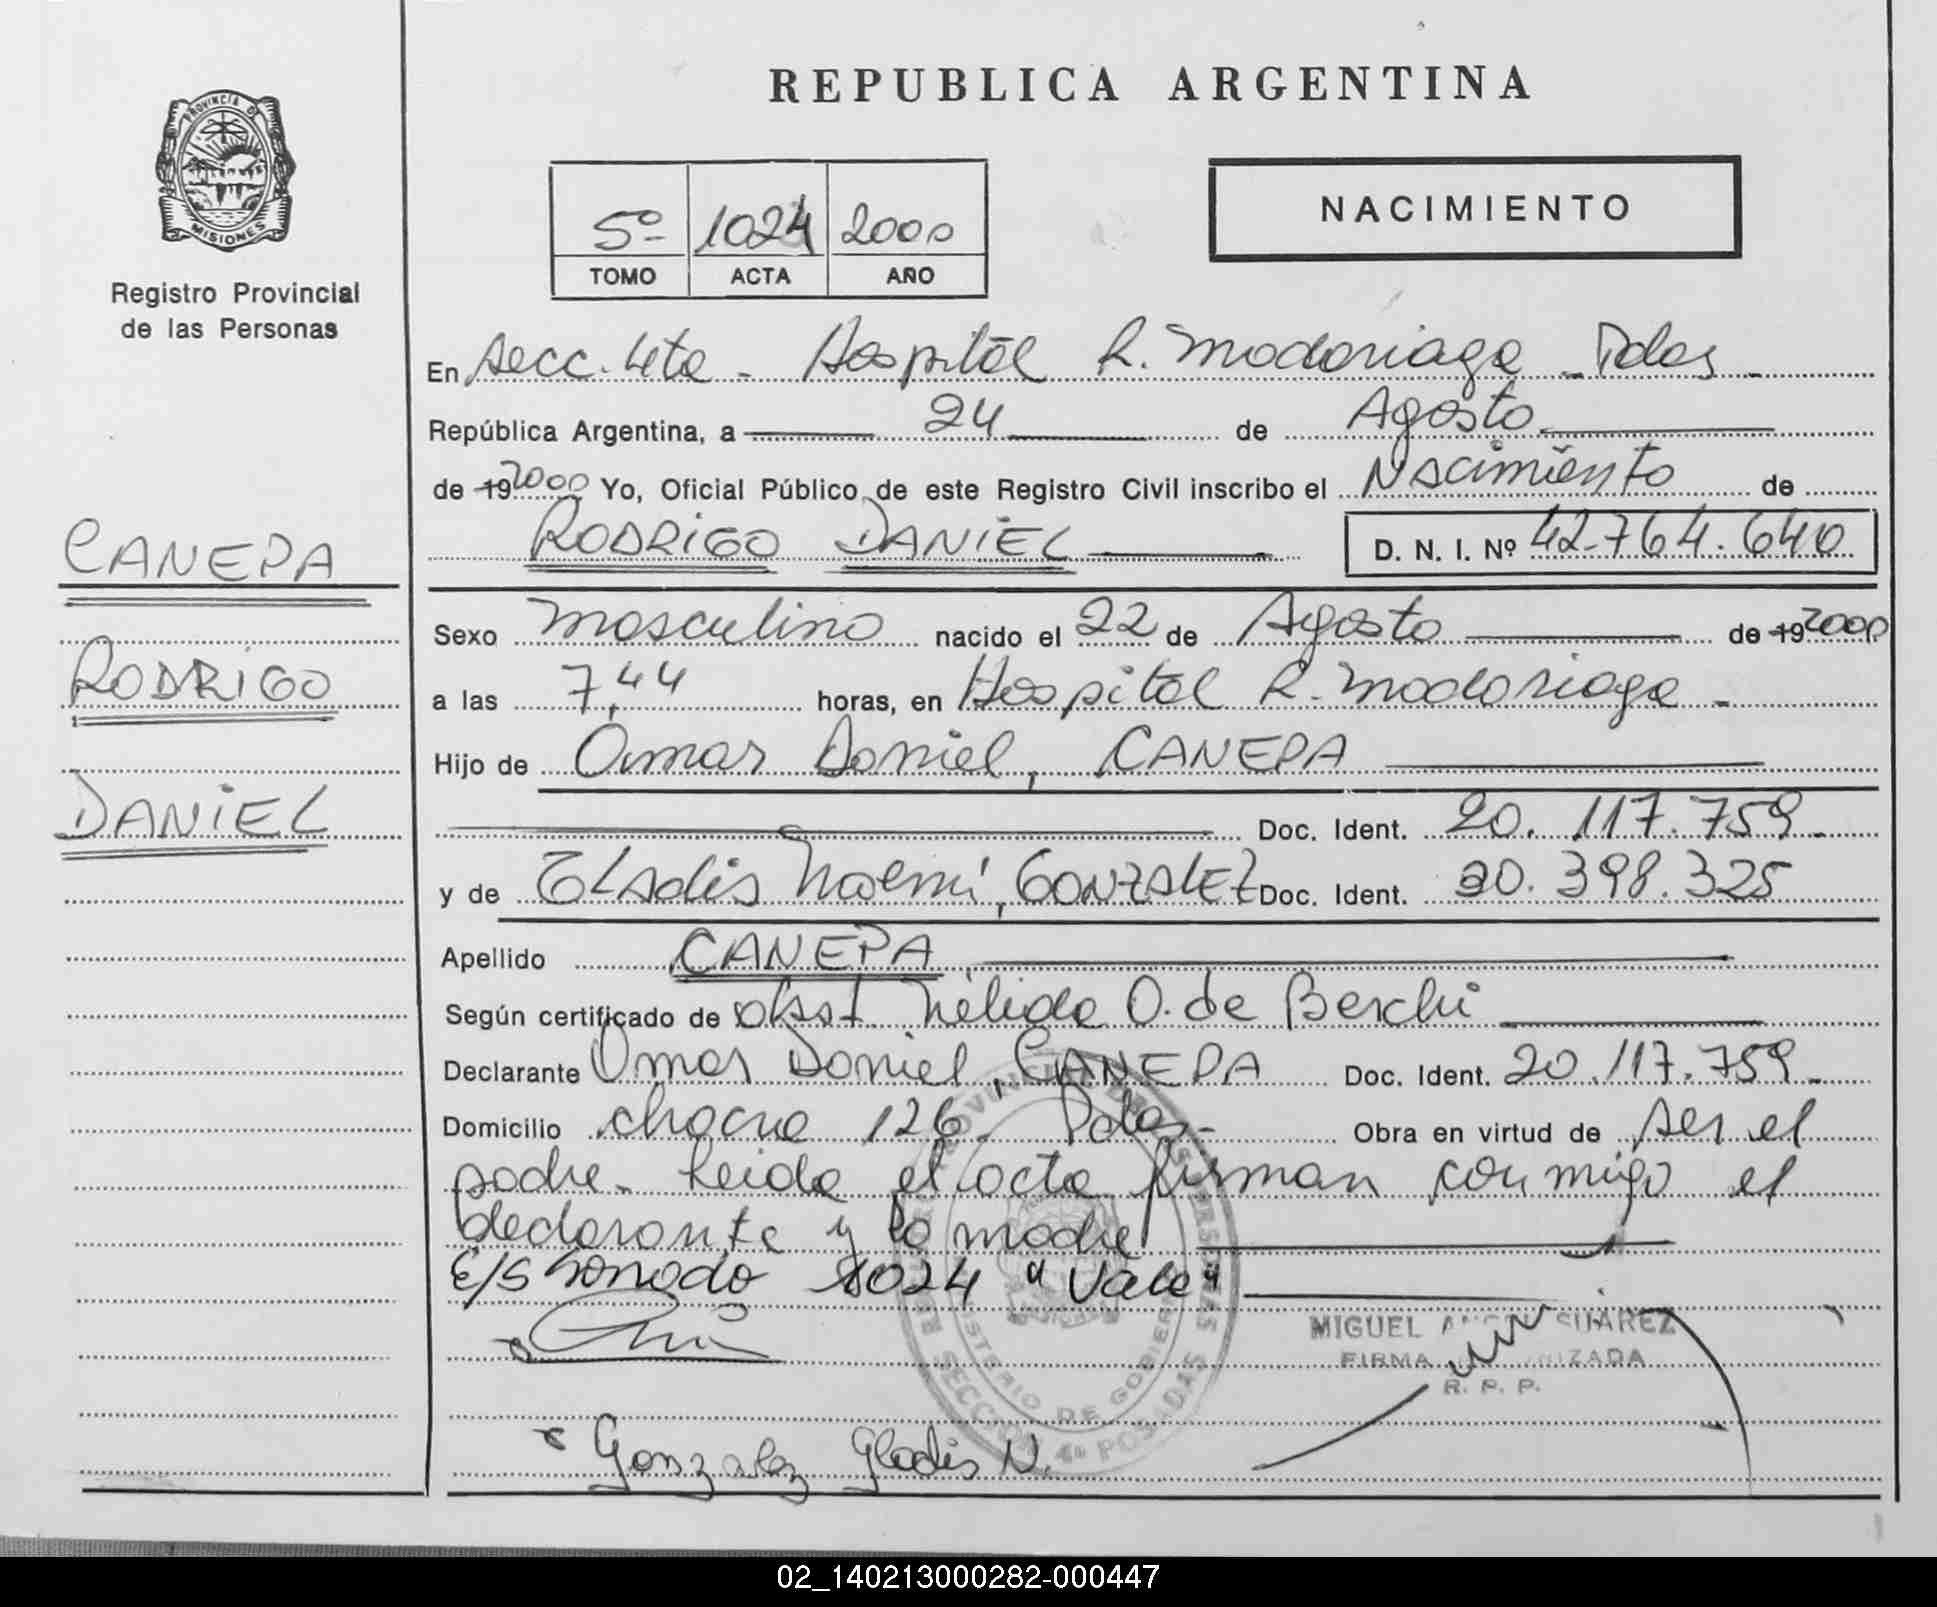 REPUBLICA ARGENTINA
PROVINCIA DE
MISIONES
Registro Provincial
de las Personas
5º 1024 2000
TOMO ACTA AÑO
NACIMIENTO
En Secc. 4ta - Hospital R. Madariaga - Pdas -
República Argentina, a 24 de Agosto
de 19 2000 Yo, Oficial Público de este Registro Civil inscribo el Nacimiento de
RODRIGO DANIEL D. N. I. Nº 42.764.640
CANEPA
RODRIGO
DANIEL
Sexo masculino nacido el 22 de Agosto de 19 2000
a las 7,44 horas, en Hospital R. Madariaga -
Hijo de Omar Daniel, CANEPA
Doc. Ident. 20.117.759.
y de Gladis Noemí, GONZALEZ Doc. Ident. 20.398.325
Apellido CANEPA
Según certificado de obst. Nélida O. de Berchi
Declarante Omar Daniel, CANEPA Doc. Ident. 20.117.759.
Domicilio chacra 126. Pdas. Obra en virtud de ser el
padre. Leida el acta firman conmigo el
declarante y la madre
E/S borrado 1024 "Vale"
MIGUEL ANGEL SUAREZ
FIRMA AUTORIZADA
R. P. P.
SECCION 4ª POSADAS
MINISTERIO DE GOBIERNO
Gonzalez Gladis N.
02_140213000282-000447